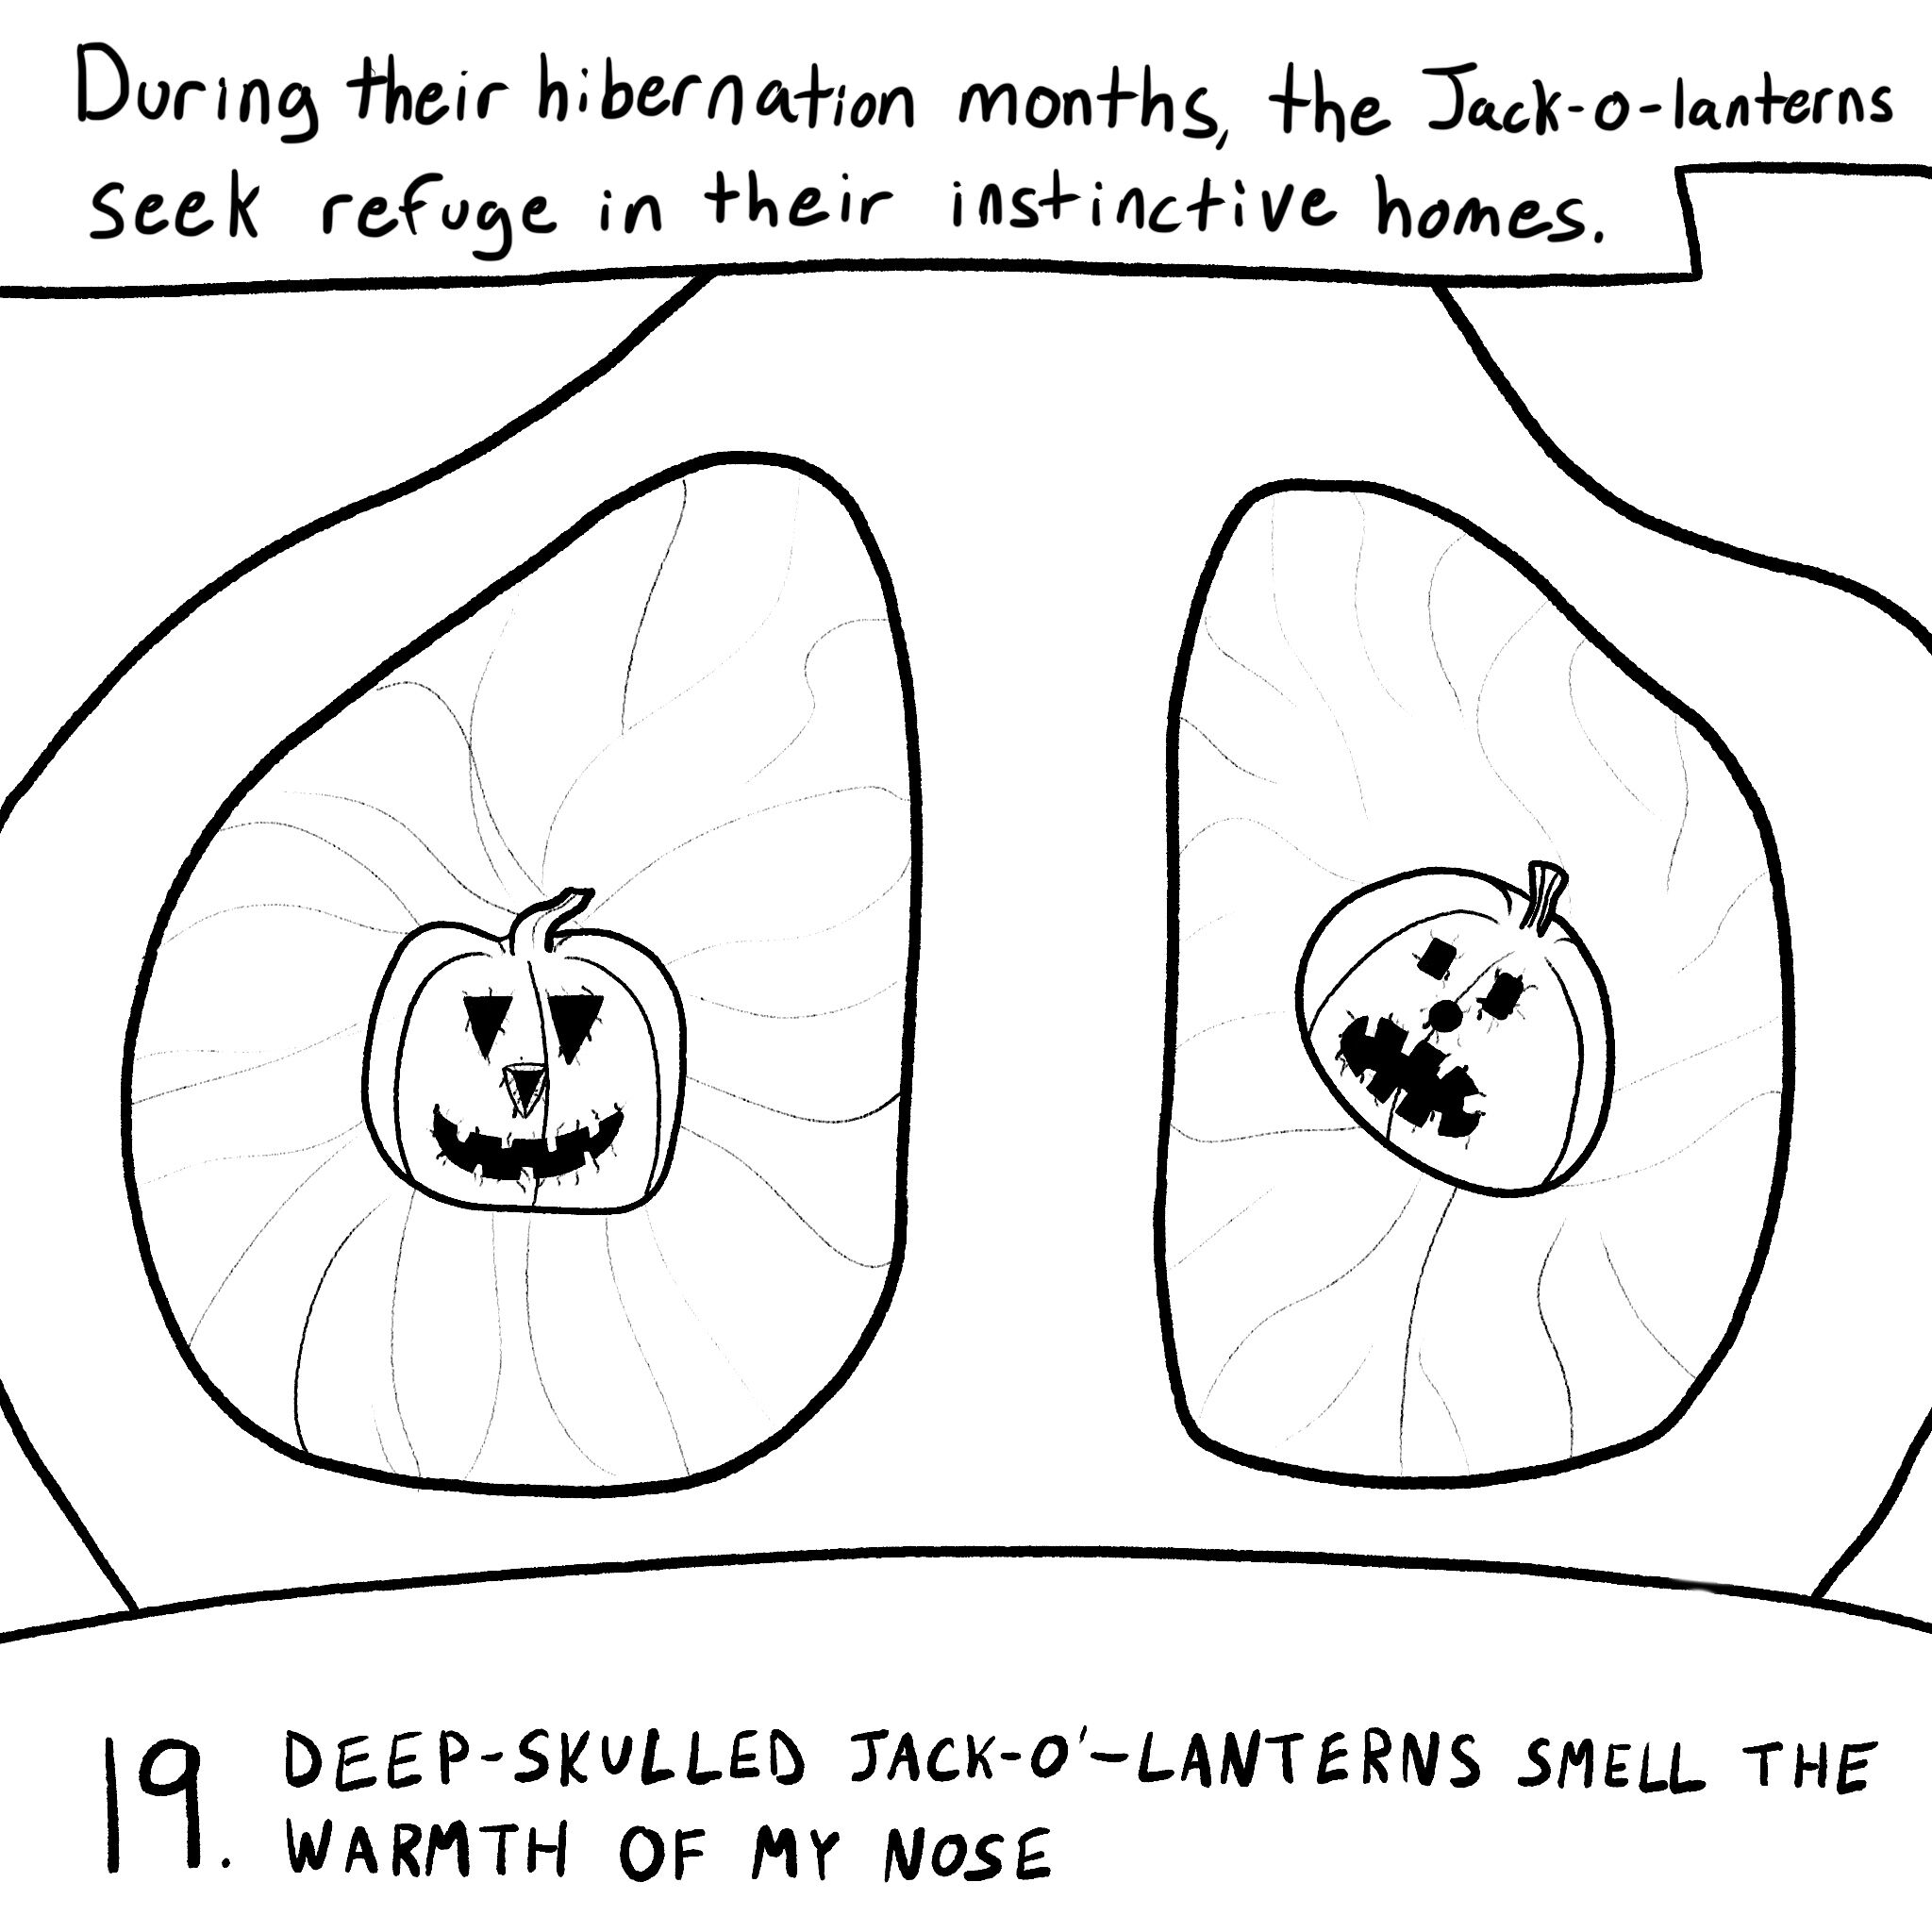 During their hibernation months, the Jack-o-lanterns
seek refuge in their instinctive homes.
19. DEEP-SKULLED JACK-O'-LANTERNS SMELL THE
WARMTH OF MY NOSE